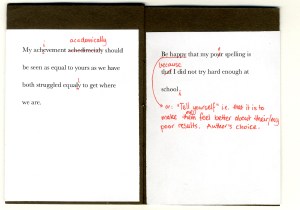 academically
My should
be seen as equal to yours as we have
both struggled to get where
we are.
Be happy that my spelling is
because
that I did not try hard enough at
school.
or: "Tell yourself" i.e. that it is to
make them feel better about their/my
poor results. Author's choice.